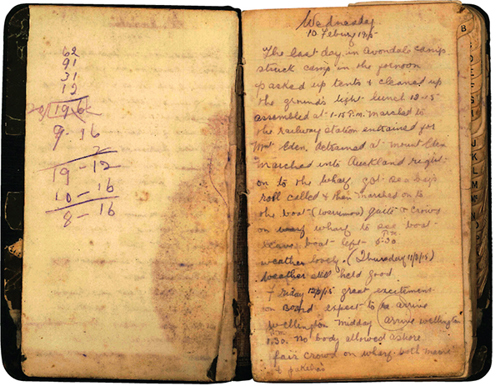 62
91
31
12
196
9-16
19-12
10-16
8-16
Wednesday
10 Febury 1915
The last day in Avondale Camp
struck camp in the forenoon
packed up tents & cleaned up
the grounds light lunch 12-15
assembled at 1-15 P.m. marched to
the railway station entrained for
Mnt Eden detrained at mount Eden
marched into Auckland right
on to the wharf got
roll called & then marched on to
the boat (warrimoo) quite a crowd
on wharf to see boat
leave boat left 5-30
P.m.
weather lovely. (Thursday 11/2/15)
weather still held good.
Friday 12/2/15 great excitement
on Board expect to arrive
Wellington midday arrive wellington
1.30. No body allowed ashore
fair crowd on wharf both maori
& pakeha
B